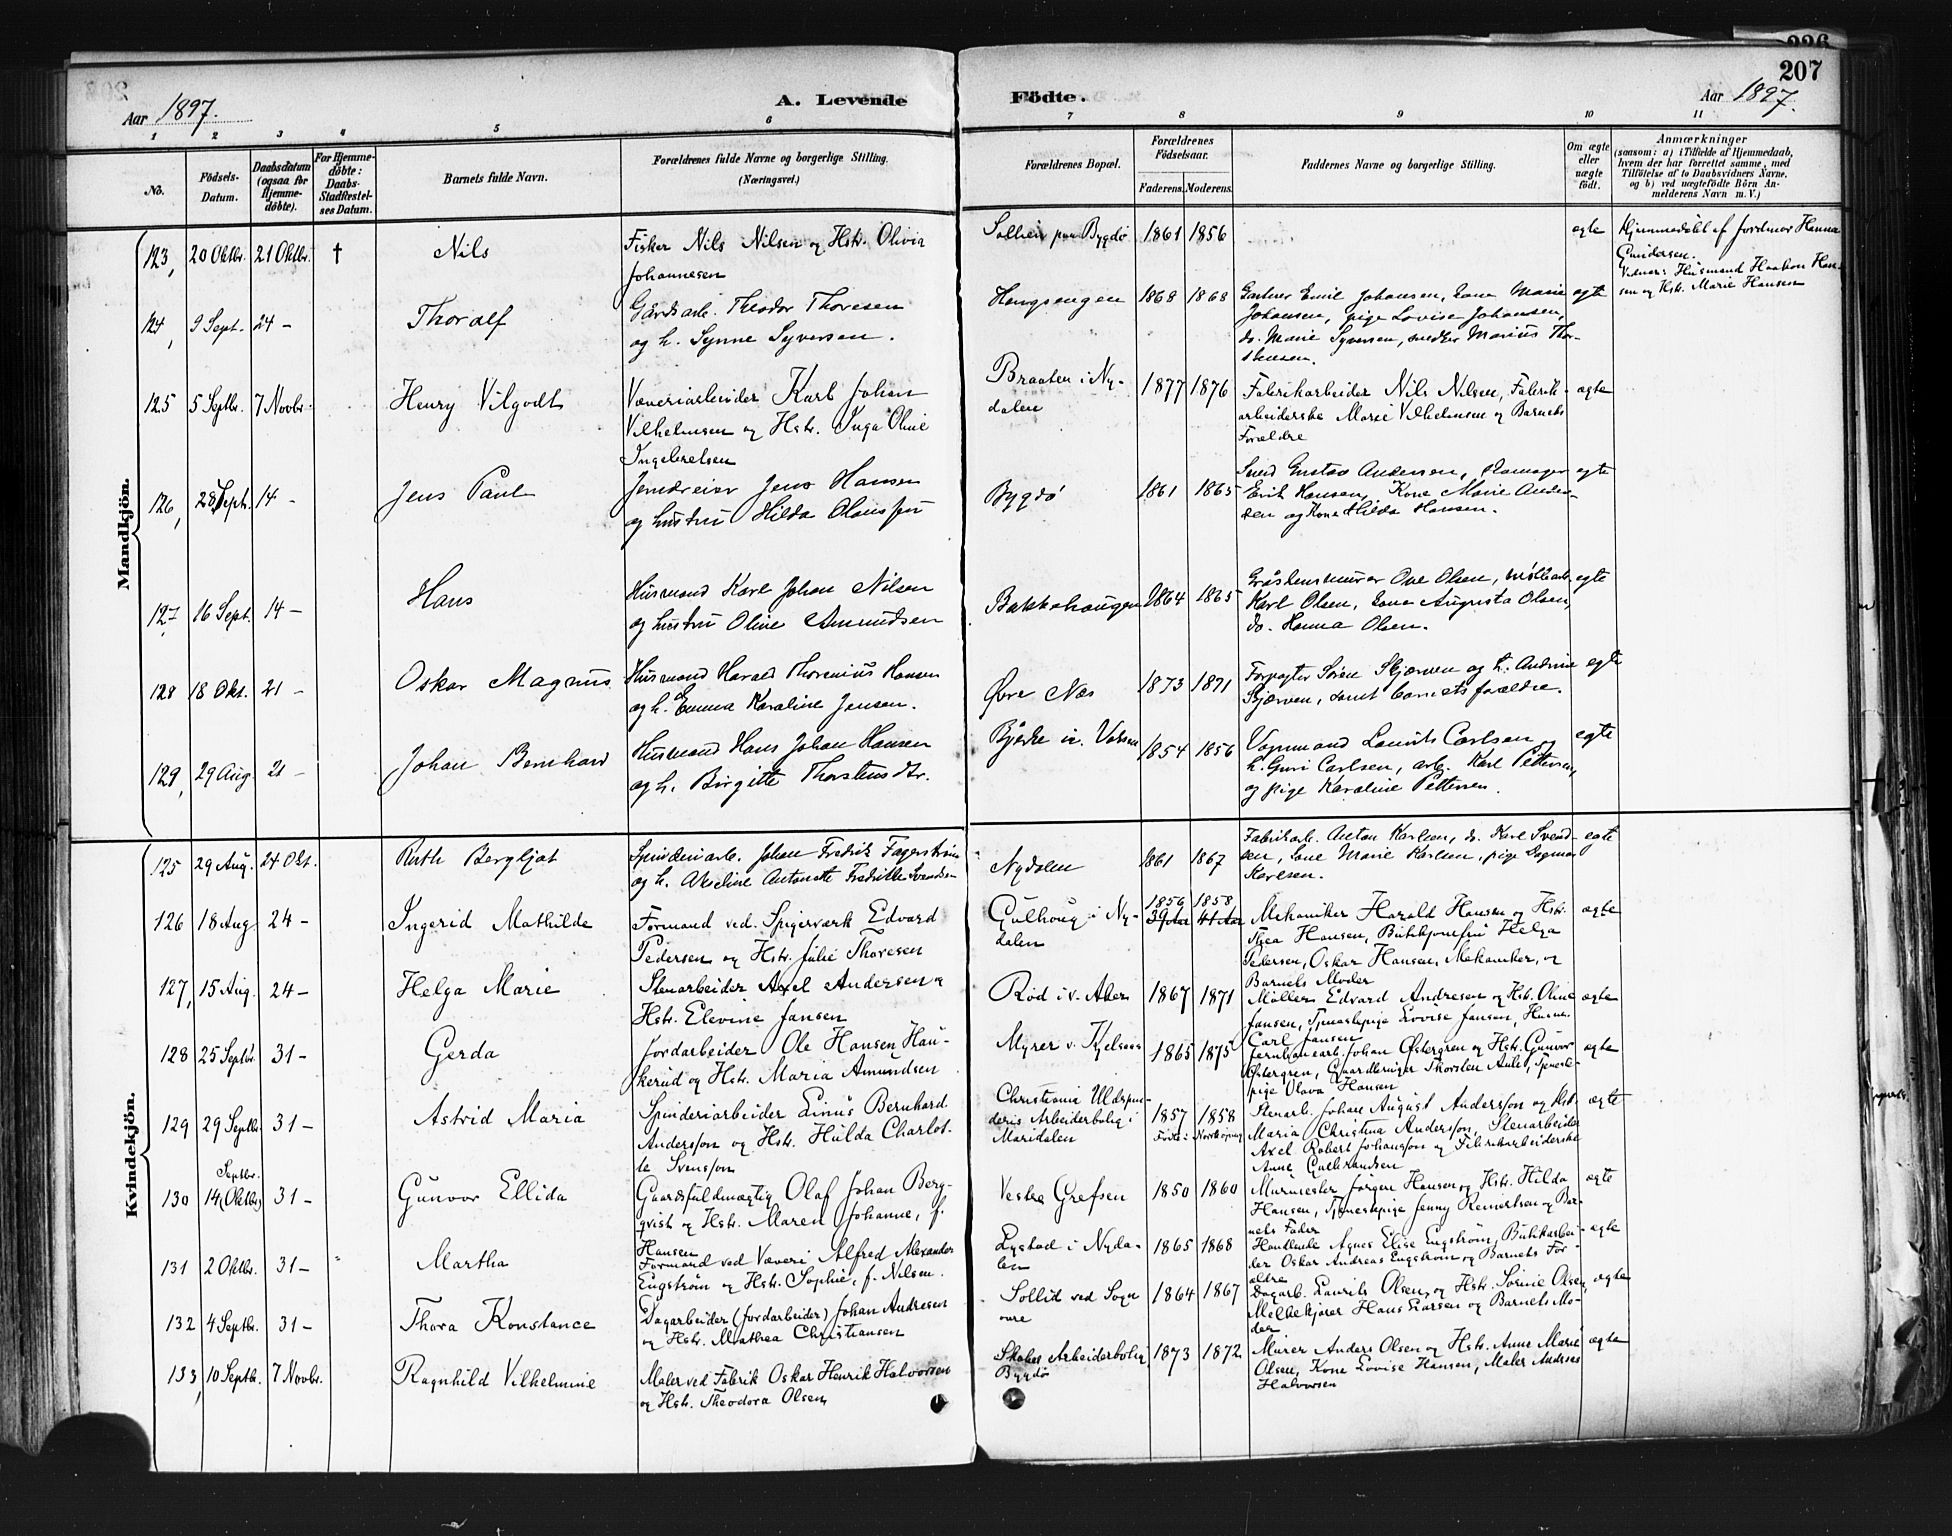 207
Aar 1897.
A. Levende Födte.
Aar 1897.
1 2 3 4 5 6 7 8 9 10 11
No.
Födsels-Datum.
Daabsdatum (ogsaa for Hjemme-döbte).
For Hjemme-döbte: Daabs-Stadfæstel-ses Datum.
Barnets fulde Navn.
Forældrenes fulde Navne og borgerlige Stilling.
(Næringsvei.)
Forældrenes Bopæl.
Forældrenes Födselsaar.
Faderens. Moderens.
Faddernes Navne og borgerlige Stilling.
Om ægte eller uægte födt.
Anmærkninger
(saasom: a) i Tilfælde af Hjemmedaab,
hvem der har forrettet samme, med
Tilföielse af to Daabsvidners Navne.
og b) ved uægtefödte Börn An-
melderens Navn m. V.)
Mandkjön.
123, 20 Oktbr. 21 Oktbr. † Nils
Fisker Nils Nilsen og Hstr. Olivia
Johannesen
Bygdö 1861 1856 egte
Hjemmedöbt af Jordmor Hanna
Gundersen.
Vidner: Husmand Haakon Han-
sen og Hstr. Marie Hansen
124, 9 Sept. 24 - Thoralf
Gårdsarb. Theodor Thoresen
og h. Synne Syversen.
Hengsengen 1868 1868
Emil Johansen, kone Marie egte
Johansen, pige Lovise Johansen,
do. Marie Syversen, snedker Marius Thor-
stensen.
125 5 Septbr. 7 Novbr. Henry Vilgodt
Væveriarbeider Karl Johan
Vilhelmsen og Hstr. Inga Oline
Ingebretsen
Braaten i Ny-
dalen 1877 1876
Fabrikarbeider Nils Nilsen, Fabrik- egte
arbeiderske Marie Vilhelmsen og Barnets
Forældre
126, 28 Sept. 14 - Jens Paul
Jerndreier Jens Hansen
og hustru Hilda
Bygdö 1861 1865
Smed Gustav Andersen, egte
Erik Hansen, Kone Marie Ander-
sen og Kone Hilda Hansen.
127, 16 Sept. 14 - Hans
Husmand Karl Johan Nilsen
og hustru Oline Amundsen
Bakkehaugen 1864 1865
Gråstensmurer Ove Olsen, egte
Karl Olsen, kone Augusta Olsen,
do. Hanna Olsen.
128 18 Okt. 21 - Oskar Magnus
Husmand Harald Thorenius Hansen
og h. Emma Karoline Jensen.
Övre Næs 1873 1871
Forpagter Sören Skjerven og h. Andrine egte
Skjerven, samt barnets forældre.
129, 29 Aug. 21 - Johan Bernhard
Husmand Hans Johan Hansen
og h. Birgitte Thorstensdtr.
Bjerke 1854 1856
Vognmand Laurits Carlsen og egte
h. Guri Carlsen, arb. Karl Pettersen,
og pige Karoline Pettersen.
Kvindekjön.
125 29 Aug. 24 Okt. Ruth Bergljot
Spinderiarb. Johan Fredrik Fagerström
og h. Akseline Antonette Fredrikke Svendsen
Nydalen 1861 1867
Fabrikarb. Anton Karlsen, do. Karl Svend- egte
sen, kone Marie Karlsen, pige Dagmar
Karlsen.
126 18 Aug. 24 - Ingerid Mathilde
Formand ved. Spigerverk Edvard
Pedersen og Hstr. Julie Thoresen
Gulhaug i Ny-
dalen 1856 1858
Mekaniker Harald Hansen og Hstr. egte
Thea Hansen, Butikjomfru Helga
Pedersen, Oskar Hansen, Mekaniker, og
Barnets Moder
127, 15 Aug. 24 - Helga Marie
Stenarbeider Axel Andersen og
Hstr. Elevine Jansen
Röd i v. Aker 1867 1871
Möller Edvard Andresen og Hstr. Oline egte
Jansen, Tjenestepige Lovise Jansen, Husm.
Carl Jansen
128 25 Septbr. 31 - Gerda
Jordarbeider Ole Hansen Hau-
kerud og Hstr. Maria Amundsen
Myrer v. Kjelsaas 1865 1875
Jernbanearb. Johan Östergren og Hstr. Gunvor egte
Östergren, Gaardbruger Thorsten Aulet, Tjeneste-
pige Olava Hansen
129 29 Septbr. 31 - Astrid Maria
Spinderiarbeider Linus Bernhard
Andersson og Hstr. Hulda Charlot-
te Svensson
Christiania Uldspin-
deris Arbeiderbolig i
Maridalen 1857 1858
Födt i Norrköping
Stenarb. Johan August Andersson og Hst. egte
Maria Christina Andersson, Stenarbeider
Axel Robert Johansson og Fabrikarbeiderske
Anne Gulbrandsen
130 Septbr. 14 (Oktbr.) 31 - Gunvor Ellida
Gaardsfuldmægtig Olaf Johan Berg-
qvist og Hstr. Maren Johanne, f.
Hansen
Vestre Grefsen 1850 1860
Murmester Jörgen Hansen og Hstr. Hilda egte
Hansen, Tjenestepige Jenny Reinertsen og Bar-
nets Fader
131 2 Oktbr. 31 - Martha
Formand ved Væveri Alfred Alexander
Engström og Hstr. Sophie, f. Nilsen.
Lystad i Nyda-
len 1865 1868
Agnes Elise Engström, Butikarbei- egte
der Oskar Andreas Engström og Barnets For-
ældre
132 4 Septbr. 31 - Thora Konstance
Dagarbeider (Jordarbeider) Johan Andresen
og Hstr. Mathea Christiansen
Sollid ved Sogn
övre 1864 1867
Dagarb. Laurits Olsen, og Hstr. Sörine Olsen, egte
Melkekjörer Hans Larsen og Barnets Mo-
der
133, 10 Septbr. 7 Novbr. Ragnhild Vilhelmine
Maler ved Fabrik Oskar Henrik Halvorsen
og Hstr. Theodora Olsen
Arbeiderbolig
Bygdö 1873 1872
Murer Anders Olsen og Hstr. Anne Marie egte
Olsen, Kone Lovise Hansen, Maler Andreas
Halvorsen